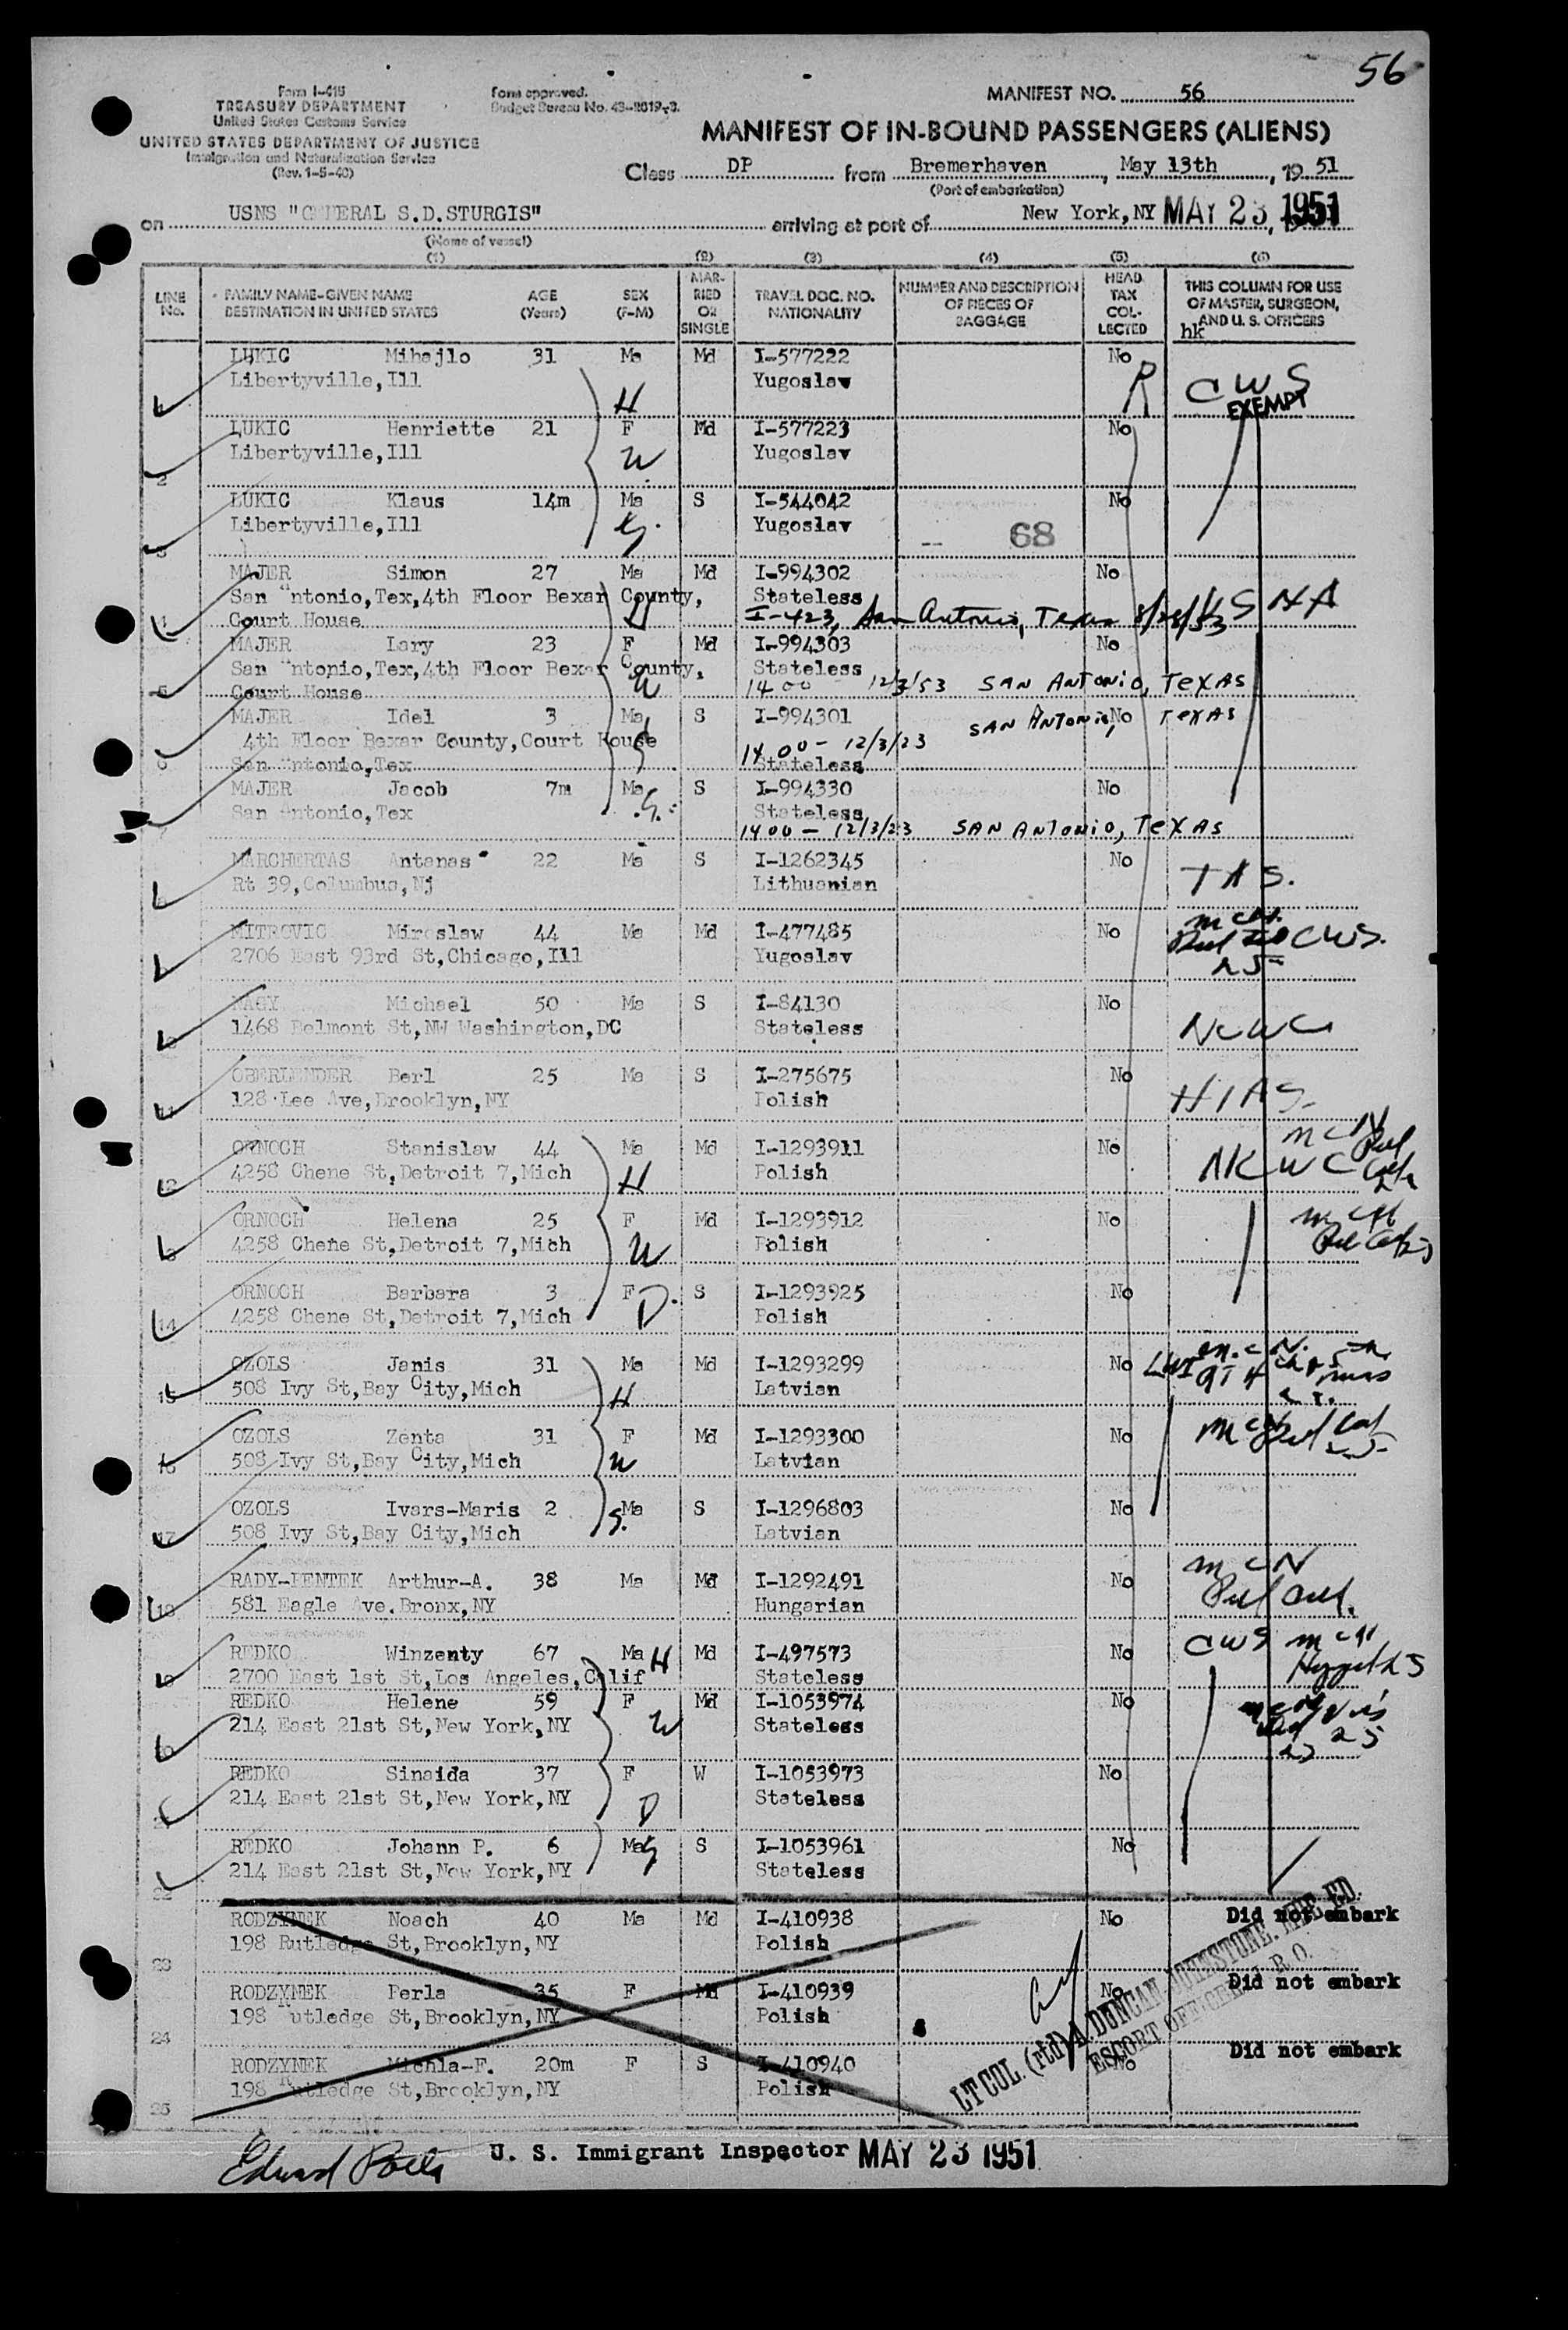 56
Form I-415
TREASURY DEPARTMENT
United States Customs Service
UNITED STATES DEPARTMENT OF JUSTICE
Immigration and Naturalization Service
(Rev. 1-5-40)
Form approved.
Budget Bureau No. 43-R019-3.
MANIFEST NO. 56
MANIFEST OF IN-BOUND PASSENGERS (ALIENS)
Class DP from Bremerhaven, May 13th, 19 51
(Port of embarkation)
on USNS "GENERAL S.D.STURGIS" arriving at port of New York,NY MAY 23, 1951
(Name of vessel)
(1) (2) (3) (4) (5) (6)
LINE No.
FAMILY NAME-GIVEN NAME
DESTINATION IN UNITED STATES
AGE (Years)
SEX (F-M)
MARRIED OR SINGLE
TRAVEL DOC. NO. NATIONALITY
NUMBER AND DESCRIPTION OF PIECES OF BAGGAGE
HEAD TAX COLLECTED
THIS COLUMN FOR USE OF MASTER, SURGEON, AND U. S. OFFICERS
hk
LUKIC Mihajlo 31 Ma Md I-577222 No
Libertyville,Ill H Yugoslav R CWS
EXEMPT
LUKIC Henriette 21 F Md I-577223 No
Libertyville,Ill W Yugoslav
2
LUKIC Klaus 14m Ma S I-544042 No
Libertyville,Ill Yugoslav
3 68
MAJER Simon 27 Ma Md I-994302 No
San Antonio,Tex,4th Floor Bexar County, Stateless
Court House H I-423, San Antonio, Texas 8/28/53 USNA
MAJER Lary 23 F Md I-994303 No
San Antonio,Tex,4th Floor Bexar County, Stateless
Court House W 1400 12/3/53 SAN ANTONIO, TEXAS
MAJER Idel 3 Ma S I-994301 No SAN ANTONIO, TEXAS
4th Floor Bexar County,Court House 1400 - 12/3/23
San Antonio,Tex Stateless
MAJER Jacob 7m Ma S I-994330 No
San Antonio,Tex Stateless
1400 - 12/3/23 SAN ANTONIO, TEXAS
MARCHERTAS Antanas 22 Ma S I-1262345 No
Rt 39,Columbus,Nj Lithuanian
MITROVIC Miroslaw 44 Ma Md I-477485 No
2706 East 93rd St,Chicago,Ill Yugoslav CWS.
25
NAGY Michael 50 Ma S I-84130 No
1468 Belmont St,NW Washington,DC Stateless NCWC
OBERLENDER Berl 25 Ma S I-275675 No
128 Lee Ave,Brooklyn,NY Polish HIAS
ORNOCH Stanislaw 44 Ma Md I-1293911 No
4258 Chene St,Detroit 7,Mich H Polish
ORNOCH Helena 25 F Md I-1293912 No
4258 Chene St,Detroit 7,Mich W Polish
ORNOCH Barbara 3 F D. S I-1293925 No
4258 Chene St,Detroit 7,Mich Polish
14
OZOLS Janis 31 Ma Md I-1293299 No
508 Ivy St,Bay City,Mich H Latvian
15
OZOLS Zenta 31 F Md I-1293300 No
508 Ivy St,Bay City,Mich W Latvian
16
OZOLS Ivars-Maris 2 Ma S I-1296803 No
508 Ivy St,Bay City,Mich S. Latvian
17
RADY-PENTEK Arthur-A. 38 Ma Md I-1292491 No
581 Eagle Ave.Bronx,NY Hungarian
REDKO Winzenty 67 Ma H Md I-497573 No CWS
2700 East 1st St,Los Angeles,Calif Stateless
REDKO Helene 59 F Md I-1053974 No
214 East 21st St,New York,NY W Stateless
REDKO Sinaida 37 F W I-1053973 No
214 East 21st St,New York,NY D Stateless
REDKO Johann P. 6 Ma S I-1053961 No
214 East 21st St,New York,NY Stateless
22
RODZYNEK Noach 40 Ma Md I-410938 No Did not embark
198 Rutledge St,Brooklyn,NY Polish
23
RODZYNEK Perla 35 F Md I-410939 No Did not embark
198 Rutledge St,Brooklyn,NY Polish
24
RODZYNEK Michla-F. 20m F S I-410940 No Did not embark
198 Rutledge St,Brooklyn,NY Polish
25
LT COL. (rtd) A. DUNCAN JOHNSTONE.
ESCORT OFFICER I. R. O.
U. S. Immigrant Inspector MAY 23 1951